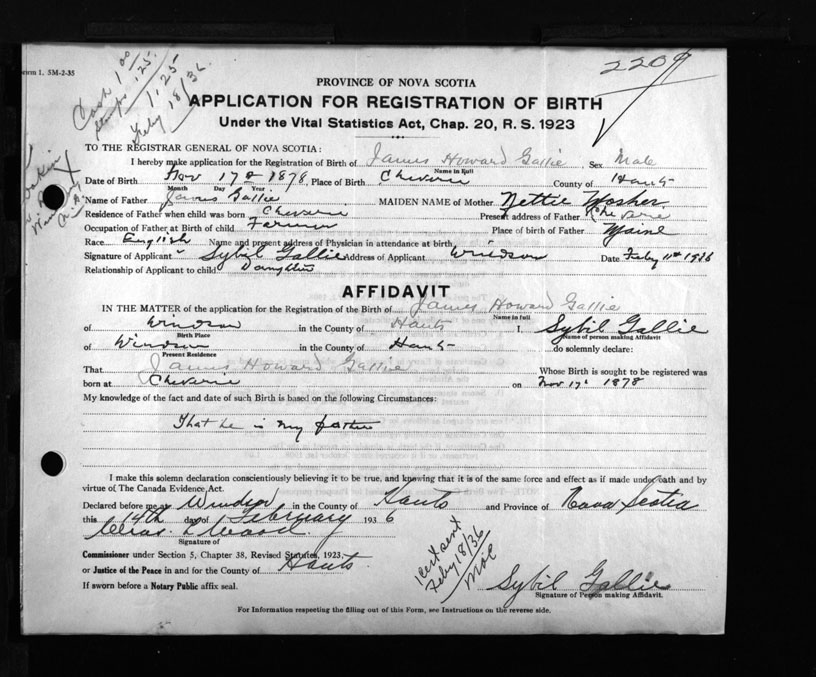 Form 1, 5M-2-35
Cash 1.00
stamps .25
1.25
Feby 18/36
2209
PROVINCE OF NOVA SCOTIA
APPLICATION FOR REGISTRATION OF BIRTH
Under the Vital Statistics Act, Chap. 20, R. S. 1923
TO THE REGISTRAR GENERAL OF NOVA SCOTIA:
I hereby make application for the Registration of Birth of James Howard Gallie Sex Male
Name in Full
Date of Birth Nov 17th 1878, Place of Birth Cheverie County of Hants
Month Day Year
Name of Father James Gallie MAIDEN NAME of Mother Nettie Mosher
Residence of Father when child was born Cheverie Present address of Father Cheverie
Occupation of Father at Birth of child Farmer Place of birth of Father Maine
Race English Name and present address of Physician in attendance at birth
Signature of Applicant Sybil Gallie Address of Applicant Windsor Date Feby 11th 1936
Relationship of Applicant to child Daughter
AFFIDAVIT
IN THE MATTER of the application for the Registration of the Birth of James Howard Gallie
Name in full
of Windsor in the County of Hants I, Sybil Gallie
Birth Place Name of person making Affidavit
of Windsor in the County of Hants do solemnly declare:
Present Residence
That James Howard Gallie Whose Birth is sought to be registered was
born at Cheverie on Nov 17th 1878
My knowledge of the fact and date of such Birth is based on the following Circumstances:
That he is my father
I make this solemn declaration conscientiously believing it to be true, and knowing that it is of the same force and effect as if made under oath and by
virtue of The Canada Evidence Act.
Declared before me at Windsor in the County of Hants and Province of Nova Scotia
this 14th day of February 1936
Signature of
Commissioner under Section 5, Chapter 38, Revised Statutes, 1923.
or Justice of the Peace in and for the County of Hants
If sworn before a Notary Public affix seal.
Cert sent
Feby 18/36
Sybil Gallie
Signature of Person making Affidavit.
For Information respecting the filling out of this Form, see Instructions on the reverse side.